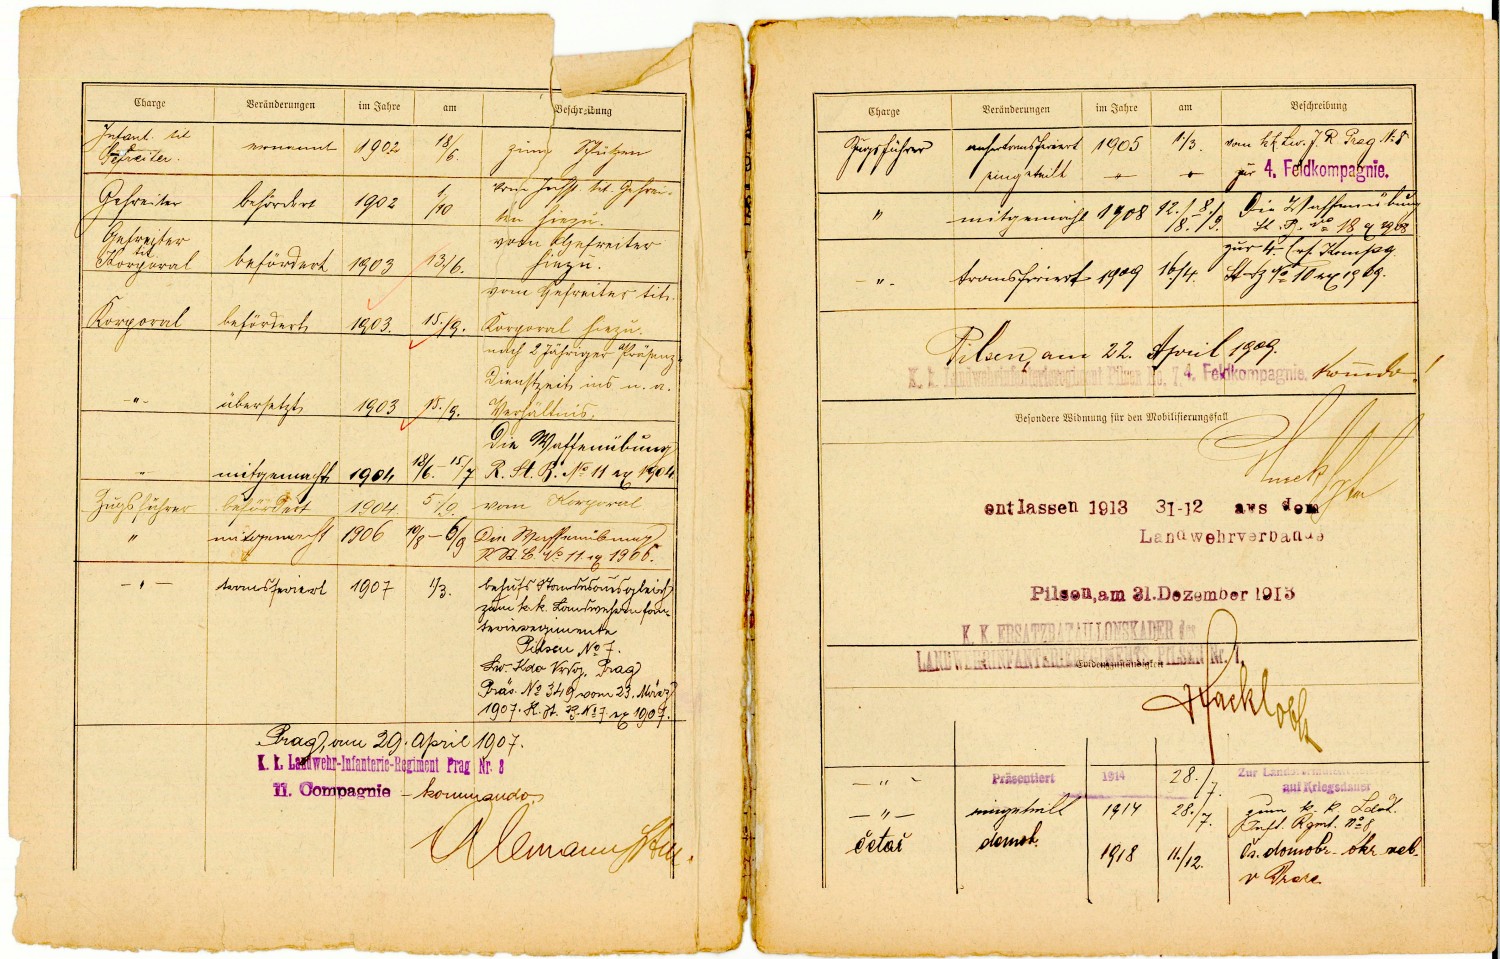 Charge Veränderungen im Jahre am Beschreibung
Infant. tit.
Gefreiter. ernannt 1902 18/6. zum Schützen
Gefreiter befördert 1902 1/10 vom Inftr. tit. Gefrei-
ten hiezu.
Gefreiter
tit.
Korporal befördert 1903 13./6. vom Gefreiter
hiezu.
vom Gefreiter tit.
Korporal befördert 1903. 15./9. Korporal hiezu.
nach 2 Jähriger Präsenz-
Dienstzeit ins n. a.
-"- übersetzt 1903 15./9. Verhältnis.
Die Waffenübung
" mitgemacht 1904 18/6.- 15/7 R. St. B. No 11 ex 1904
Zugsführer befördert 1904 5./9. vom Korporal
" mitgemacht 1906 10/8 - 6/9 Die Waffenübung
No 11 ex 1906.
-"- transferiert 1907 1/3. behufs Standesausgleich
zum k.k. Landwehrinfan-
terieregimente
Pilsen No 7.
Prag
Präs. No 349 vom 23. März
1907. No 7 ex 1907.
Prag, am 29. April 1907.
K. k. Landwehr-Infanterie-Regiment Prag Nr. 8
11. Compagnie - kommando
Charge Veränderungen im Jahre am Beschreibung
Zugsführer anhertransferiert 1905 1./3. vom kk. Lw. J. R. Prag No 8
eingeteilt -"- -"- zur 4. Feldkompagnie.
" mitgemacht 1908 12./8.- 8./9. Die Waffenübung
No 18 ex 1908
zur 4. Komp.
-"- transferiert 1909 16./4. No 10 ex 1909.
Pilsen, am 22. April 1909.
K. k. Landwehrinfanterieregiment Pilsen No. 7. 4. Feldkompagnie. Komdo.!
Besondere Widmung für den Mobilisierungsfall
entlassen 1913 31-12 aus dem
Landwehrverbande
Pilsen, am 31.Dezember 1913
K. K. ERSATZBATAILLONSKADER des
LANDWEHRINFANTERIEREGIMENTS PILSEN Nr. 7.
Evidenzzuständigkeit
-"- Präsentiert 1914 28./7. Zur
auf Kriegsdauer
-"- eingeteilt 1914 28./7. zum k. k. Ldst.
Inft. Rgmt. No 8
četař demob. 1918 11./12. čs. domobr. okr. vel.
v Praze.